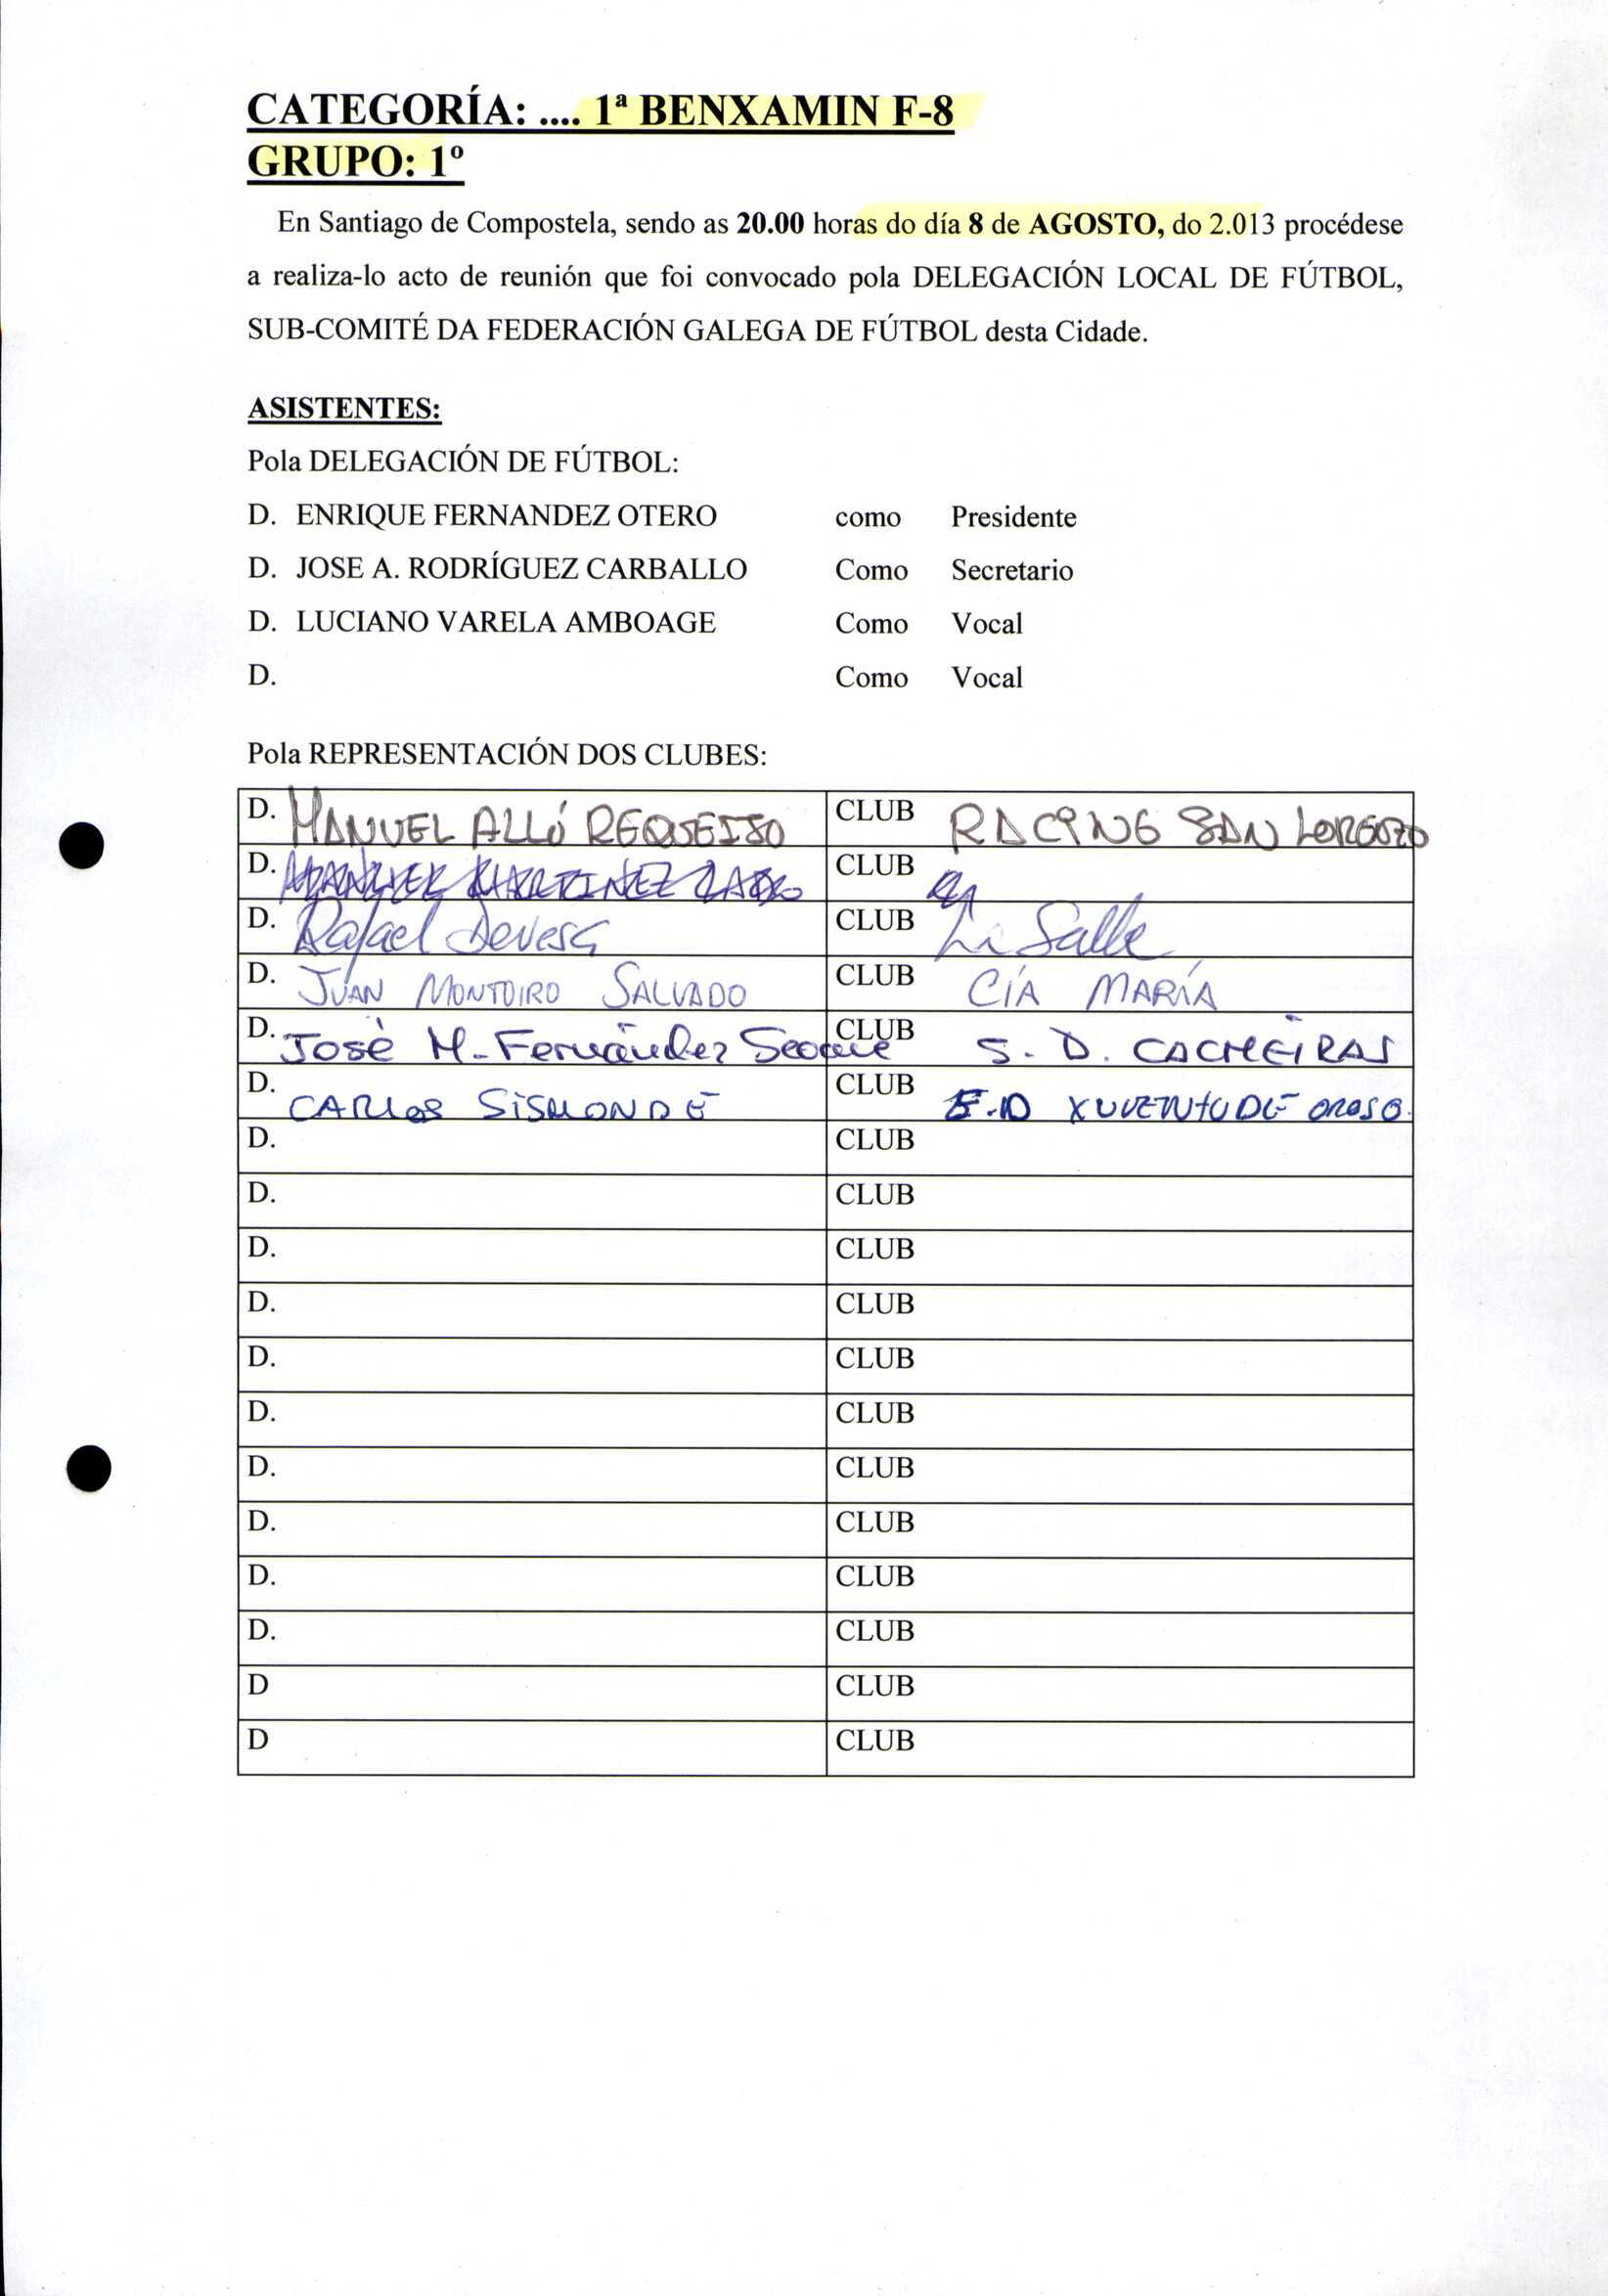 CATEGORÍA: .... 1ª BENXAMIN F-8
GRUPO: 1º
En Santiago de Compostela, sendo as 20.00 horas do día 8 de AGOSTO, do 2.013 procédese
a realiza-lo acto de reunión que foi convocado pola DELEGACIÓN LOCAL DE FÚTBOL,
SUB-COMITÉ DA FEDERACIÓN GALEGA DE FÚTBOL desta Cidade.
ASISTENTES:
Pola DELEGACIÓN DE FÚTBOL:
D. ENRIQUE FERNANDEZ OTERO como Presidente
D. JOSE A. RODRÍGUEZ CARBALLO Como Secretario
D. LUCIANO VARELA AMBOAGE Como Vocal
D. Como Vocal
Pola REPRESENTACIÓN DOS CLUBES:
D. MANUEL ALLÓ REQUEIJO CLUB RACING SAN LORENZO
D. MARTINEZ CLUB
D. Rafael Devesa CLUB La Salle
D. JUAN MONTOIRO SALVADO CLUB CÍA MARÍA
D. José M. Fernández Seoane CLUB S.D. CACHEIRAS
D. CARLOS SISMONDE CLUB E.D XUVENTUDE OROSO.
D. CLUB
D. CLUB
D. CLUB
D. CLUB
D. CLUB
D. CLUB
D. CLUB
D. CLUB
D. CLUB
D. CLUB
D CLUB
D CLUB